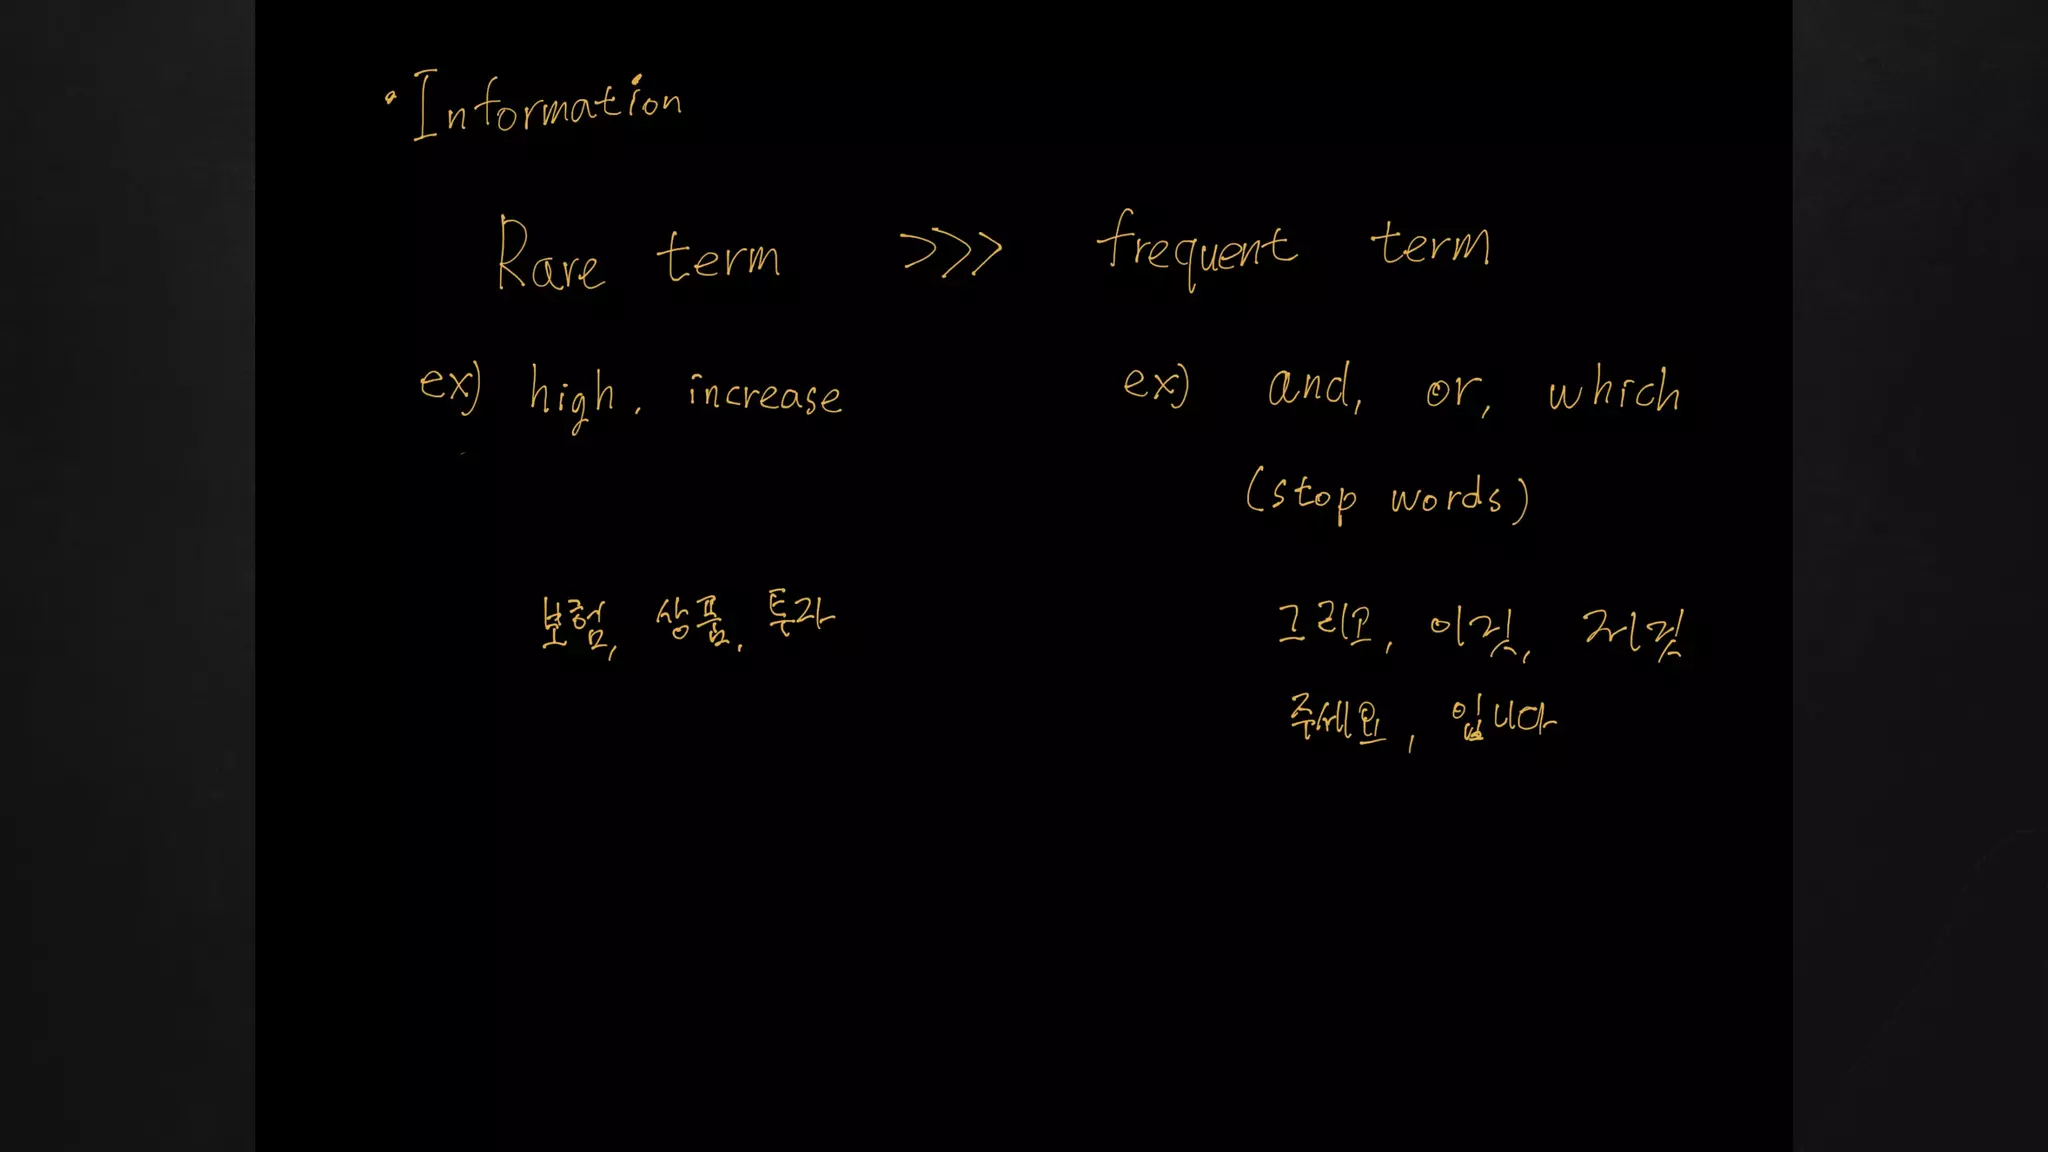 · Information
Rare term >>> frequent term
ex) high, increase ex) and, or, which
(stop words)
보험, 상품, 투자 그리고, 이것, 저것
주세요, 입니다